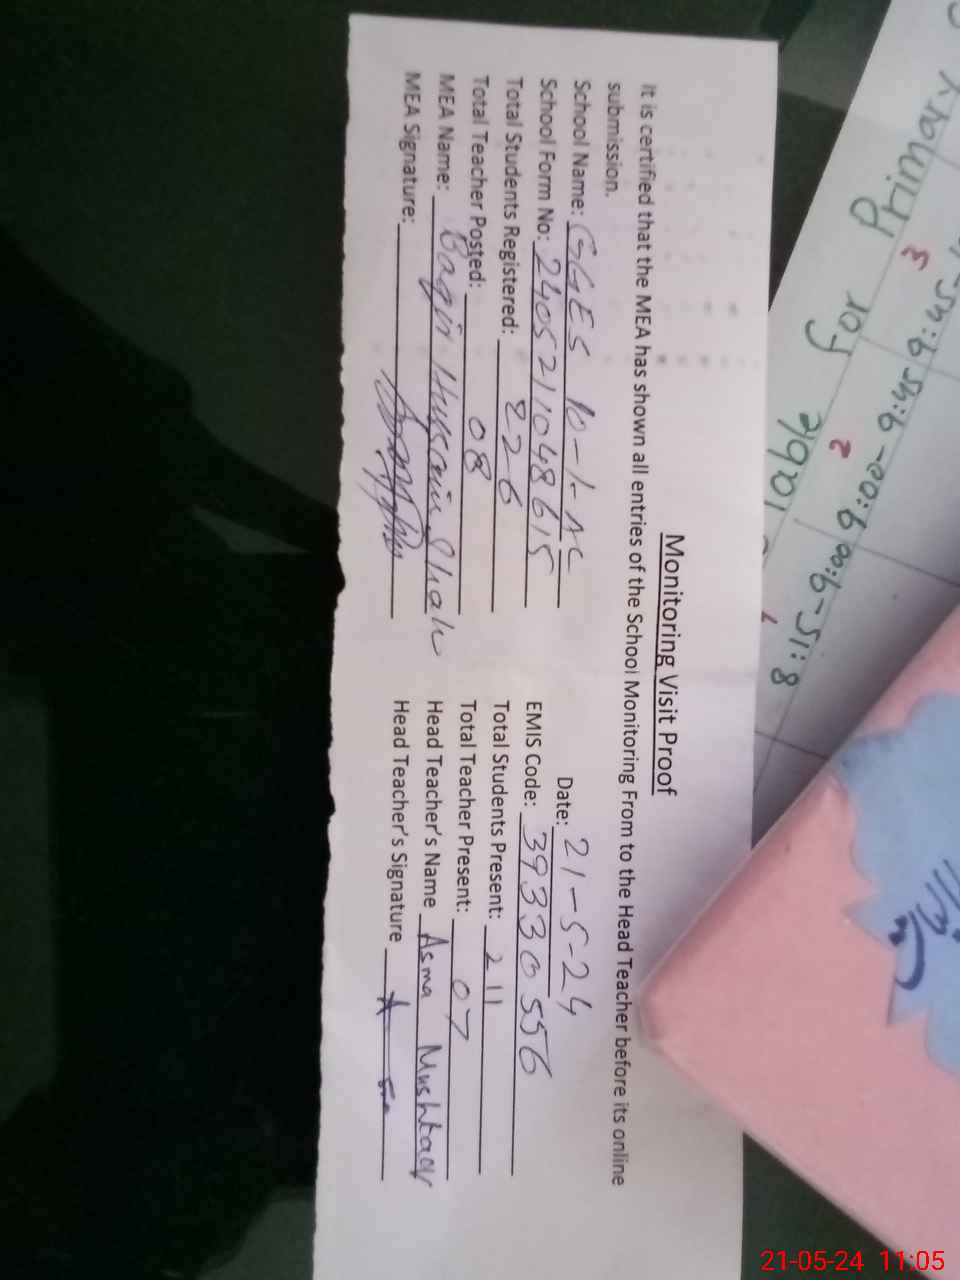 Monitoring Visit Proof
It is certified that the MEA has shown all entries of the School Monitoring From to the Head Teacher before its online
submission.
School Name: GGES 10-1-AL
Date: 21-5-24
School Form No: 2405211048615
EMIS Code: 39330556
Total Students Registered: 226
Total Students Present: 211
Total Teacher Posted: 08
Total Teacher Present: 07
MEA Name: Baqir Hussain Shah
Head Teacher's Name Asma Mushtaq
MEA Signature:
Head Teacher's Signature
Table for Primary
1 2 3
8:15-9:00 9:00-9:45 9:45-
21-05-24 11:05